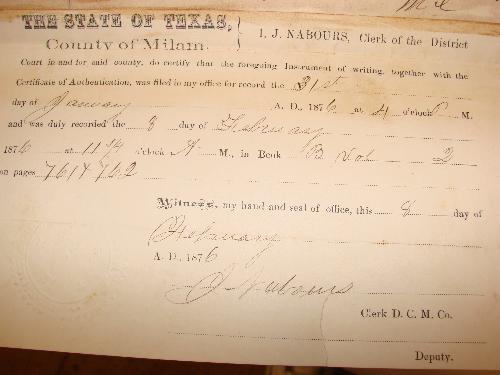 THE STATE OF TEXAS,
County of Milam.
I, J. NABOURS, Clerk of the District
Court in and for said county, do certify that the foregoing Instrument of writing, together with the
Certificate of Authentication, was filed in my office for record the 31st
day of January A. D., 1876 at 4 o'clock P M.
and was duly recorded the 8 day of February
1876 at 11 1/4 o'clock A M., in Book B Vol 2
on pages 761 & 762
Witness, my hand and seal of office, this 8 day of
February
A. D., 1876
J Nabours
Clerk D. C. M. Co.
Deputy.